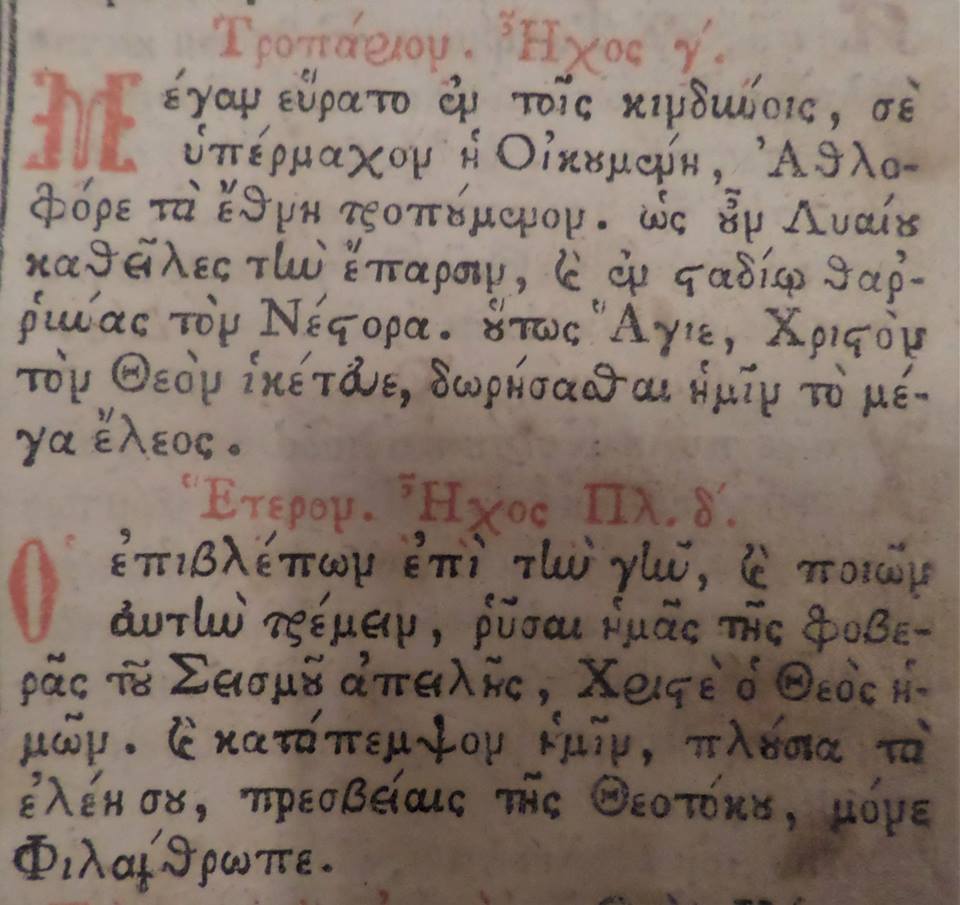 Τροπάριον. Ἦχος γ'.
Μέγαν εὕρατο ἐν τοῖς κινδύνοις, σὲ
ὑπέρμαχον ἡ Οἰκουμένη, Ἀθλο-
φόρε τὰ ἔθνη τροπούμενον. ὡς οὖν Λυαίου
καθεῖλες τὴν ἔπαρσιν, ϗ ἐν σταδίῳ θαῤ-
ῥύνας τὸν Νέστορα. οὕτως Ἅγιε, Χριστὸν
τὸν Θεὸν ἱκέτευε, δωρήσασθαι ἡμῖν τὸ μέ-
γα ἔλεος.
Ἕτερον. Ἦχος Πλ. δ'.
Ὁ ἐπιβλέπων ἐπὶ τὴν γῆν, ϗ ποιῶν
ἀυτὴν τρέμειν, ῥῦσαι ἡμᾶς τῆς φοβε-
ρᾶς τοῦ Σεισμοῦ ἀπειλῆς, Χριστὲ ὁ Θεὸς ἡ-
μῶν. ϗ κατάπεμψον ἡμῖν, πλούσια τὰ
ἐλέη σου, πρεσβείαις τῆς Θεοτόκου, μόνε
Φιλάνθρωπε.